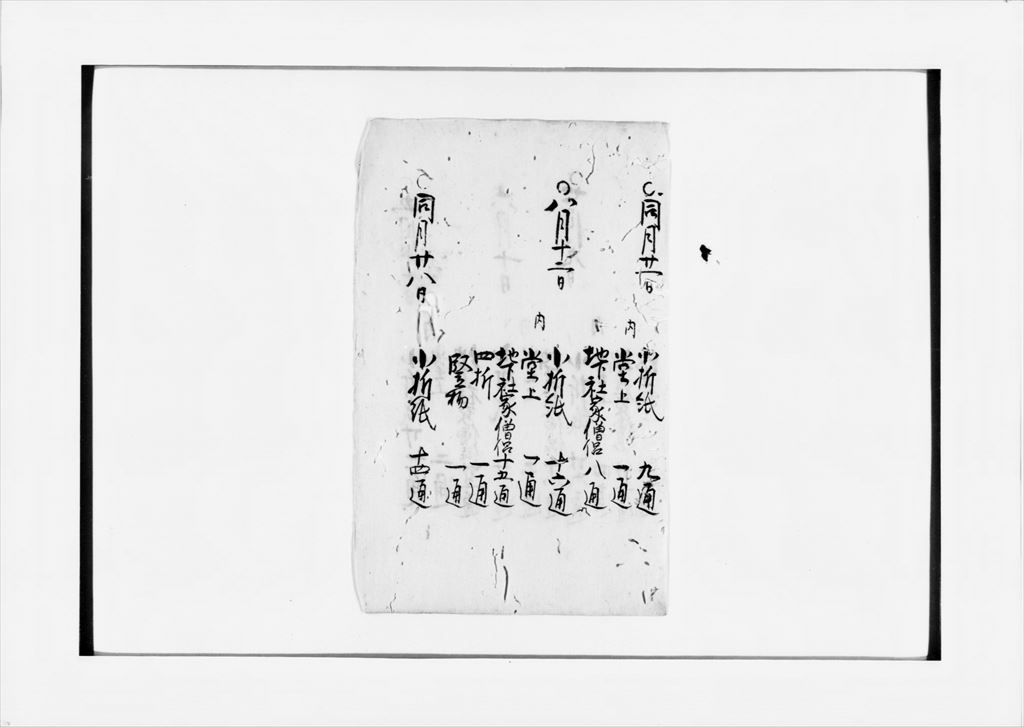 ○同月廿一日
小折紙 九通
内
堂上 一通
地下社家僧侶 八通
○八月十二日
小折紙 十六通
内
堂上 一通
地下社家僧侶 十五通
四折 一通
竪 一通
○同月廿八日
小折紙 十四通